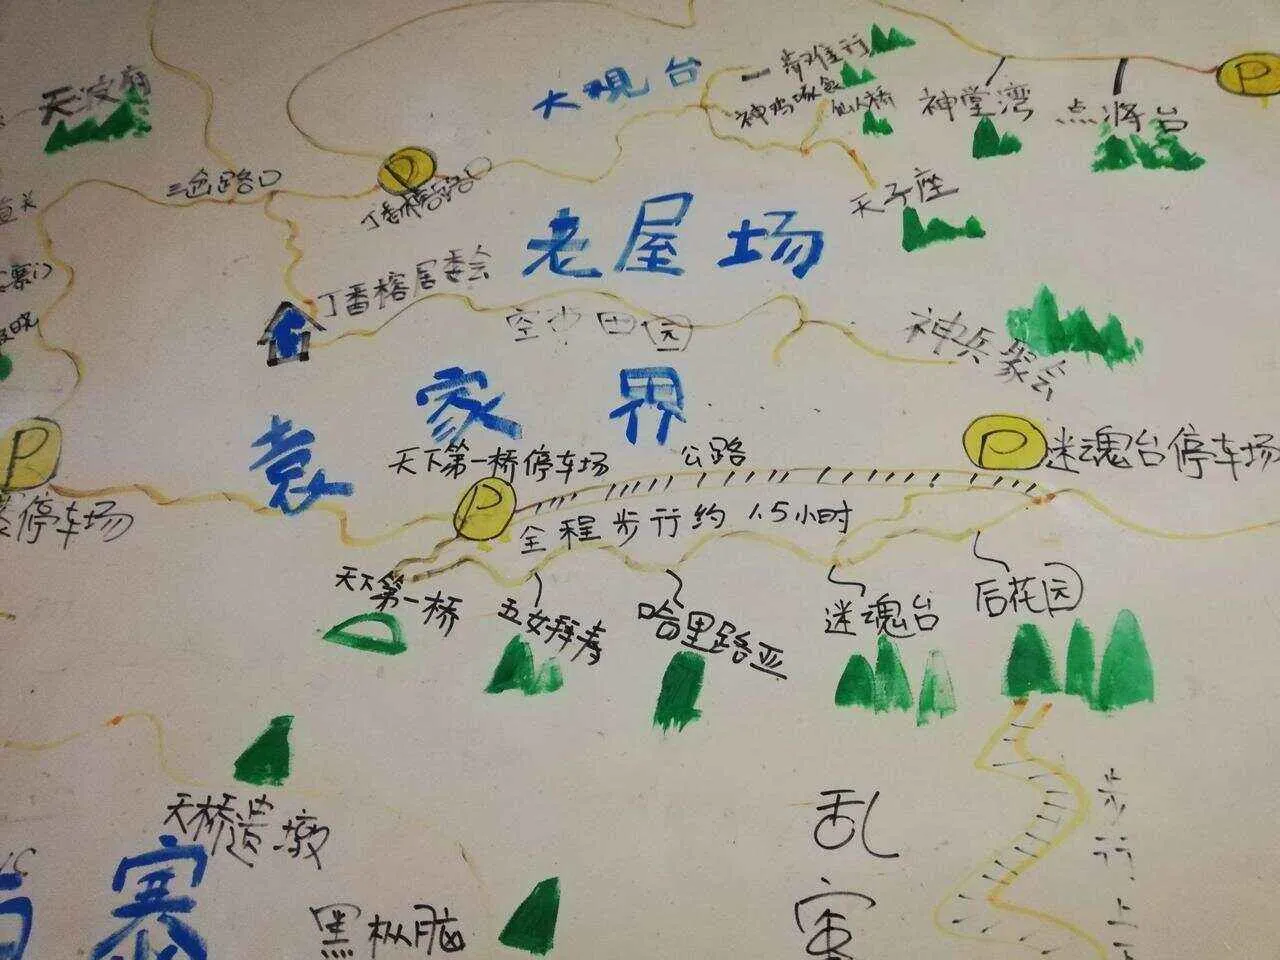 大观台
一夫难行
天波府
神鸡啄食
仙人桥
神堂湾
点将台
P
P
三岔路口
丁香榕路口
天子座
老屋场
丁香榕居委会
空中田园
神兵聚会
袁家界
P
天下第一桥停车场
公路
P
迷魂台停车场
停车场
P
全程步行约1.5小时
天下第一桥
五女拜寿
哈里路亚
迷魂台
后花园
天桥遗墩
乱
寨
黑枞脑
步行上